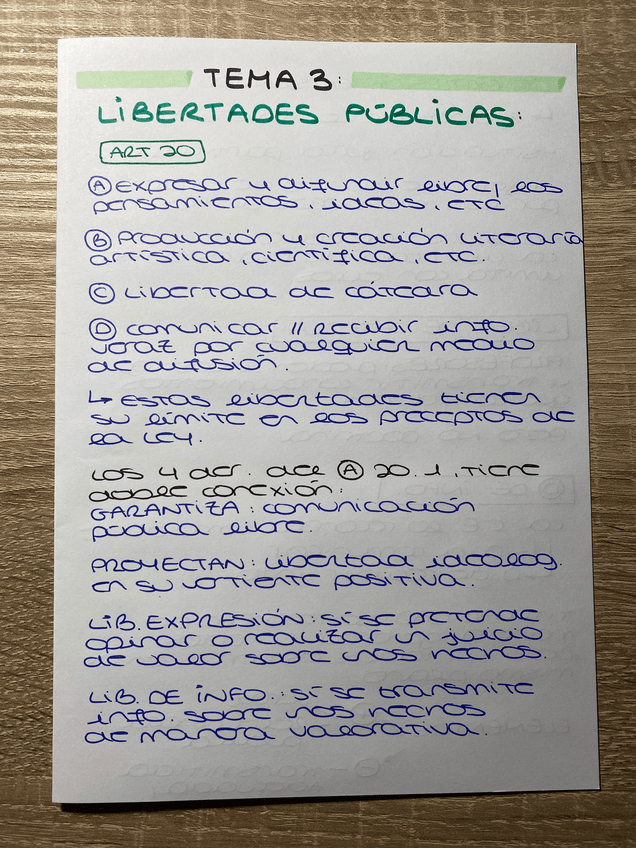 TEMA 3:
LIBERTADES PÚBLICAS:
ART 20
Ⓐ Expresar y difundir libre, los
pensamientos, ideas, etc
Ⓑ Producción y creación literaria
artística, científica, etc.
Ⓒ Libertad de cátedra
Ⓓ comunicar // recibir info.
veraz por cualquier medio
de difusión.
↳ Estas libertades tienen
su límite en los preceptos de
la ley.
Los 4 der. del Ⓐ 20.1, tiene
doble conexión:
GARANTIZA: comunicación
pública libre.
PROYECTAN: libertad ideolog.
en su vertiente positiva.
LIB. EXPRESIÓN: sí se pretende
opinar o realizar un juicio
de valor sobre unos hechos.
LIB. DE INFO.: sí se transmite
info. sobre unos hechos
de manera valorativa.